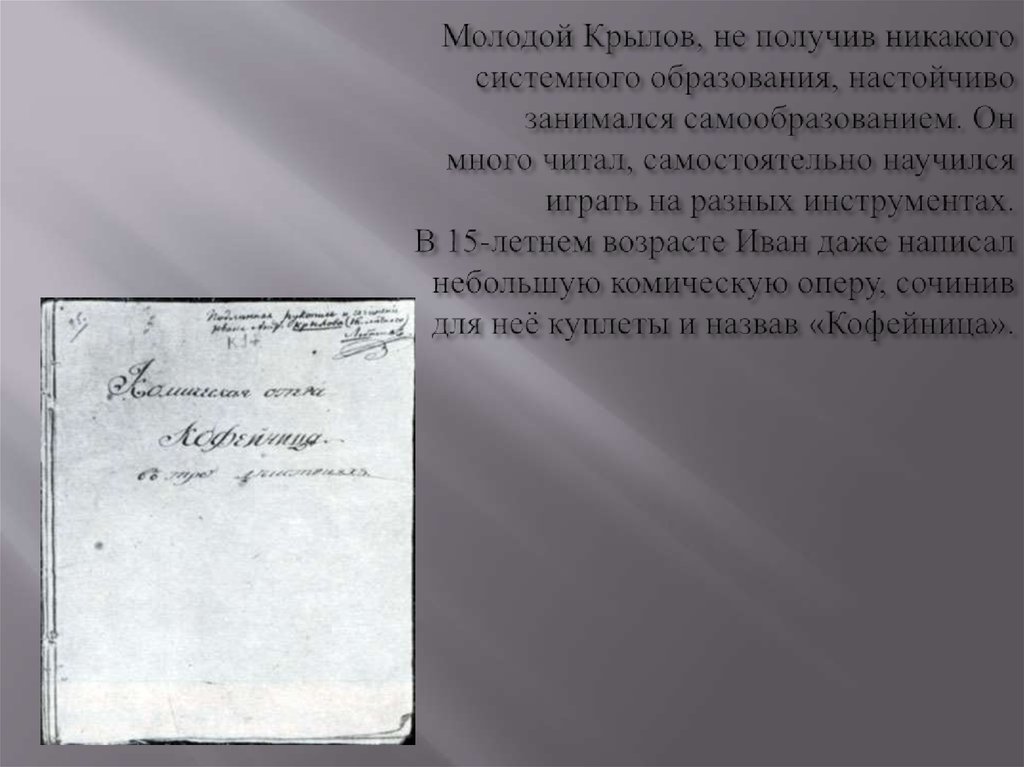 Молодой Крылов, не получив никакого
системного образования, настойчиво
занимался самообразованием. Он
много читал, самостоятельно научился
играть на разных инструментах.
В 15-летнем возрасте Иван даже написал
небольшую комическую оперу, сочинив
для неё куплеты и назвав «Кофейница».
Подлинная рукопись и сочинение
Крылова
Комическая опера
Кофейница.
въ трехъ